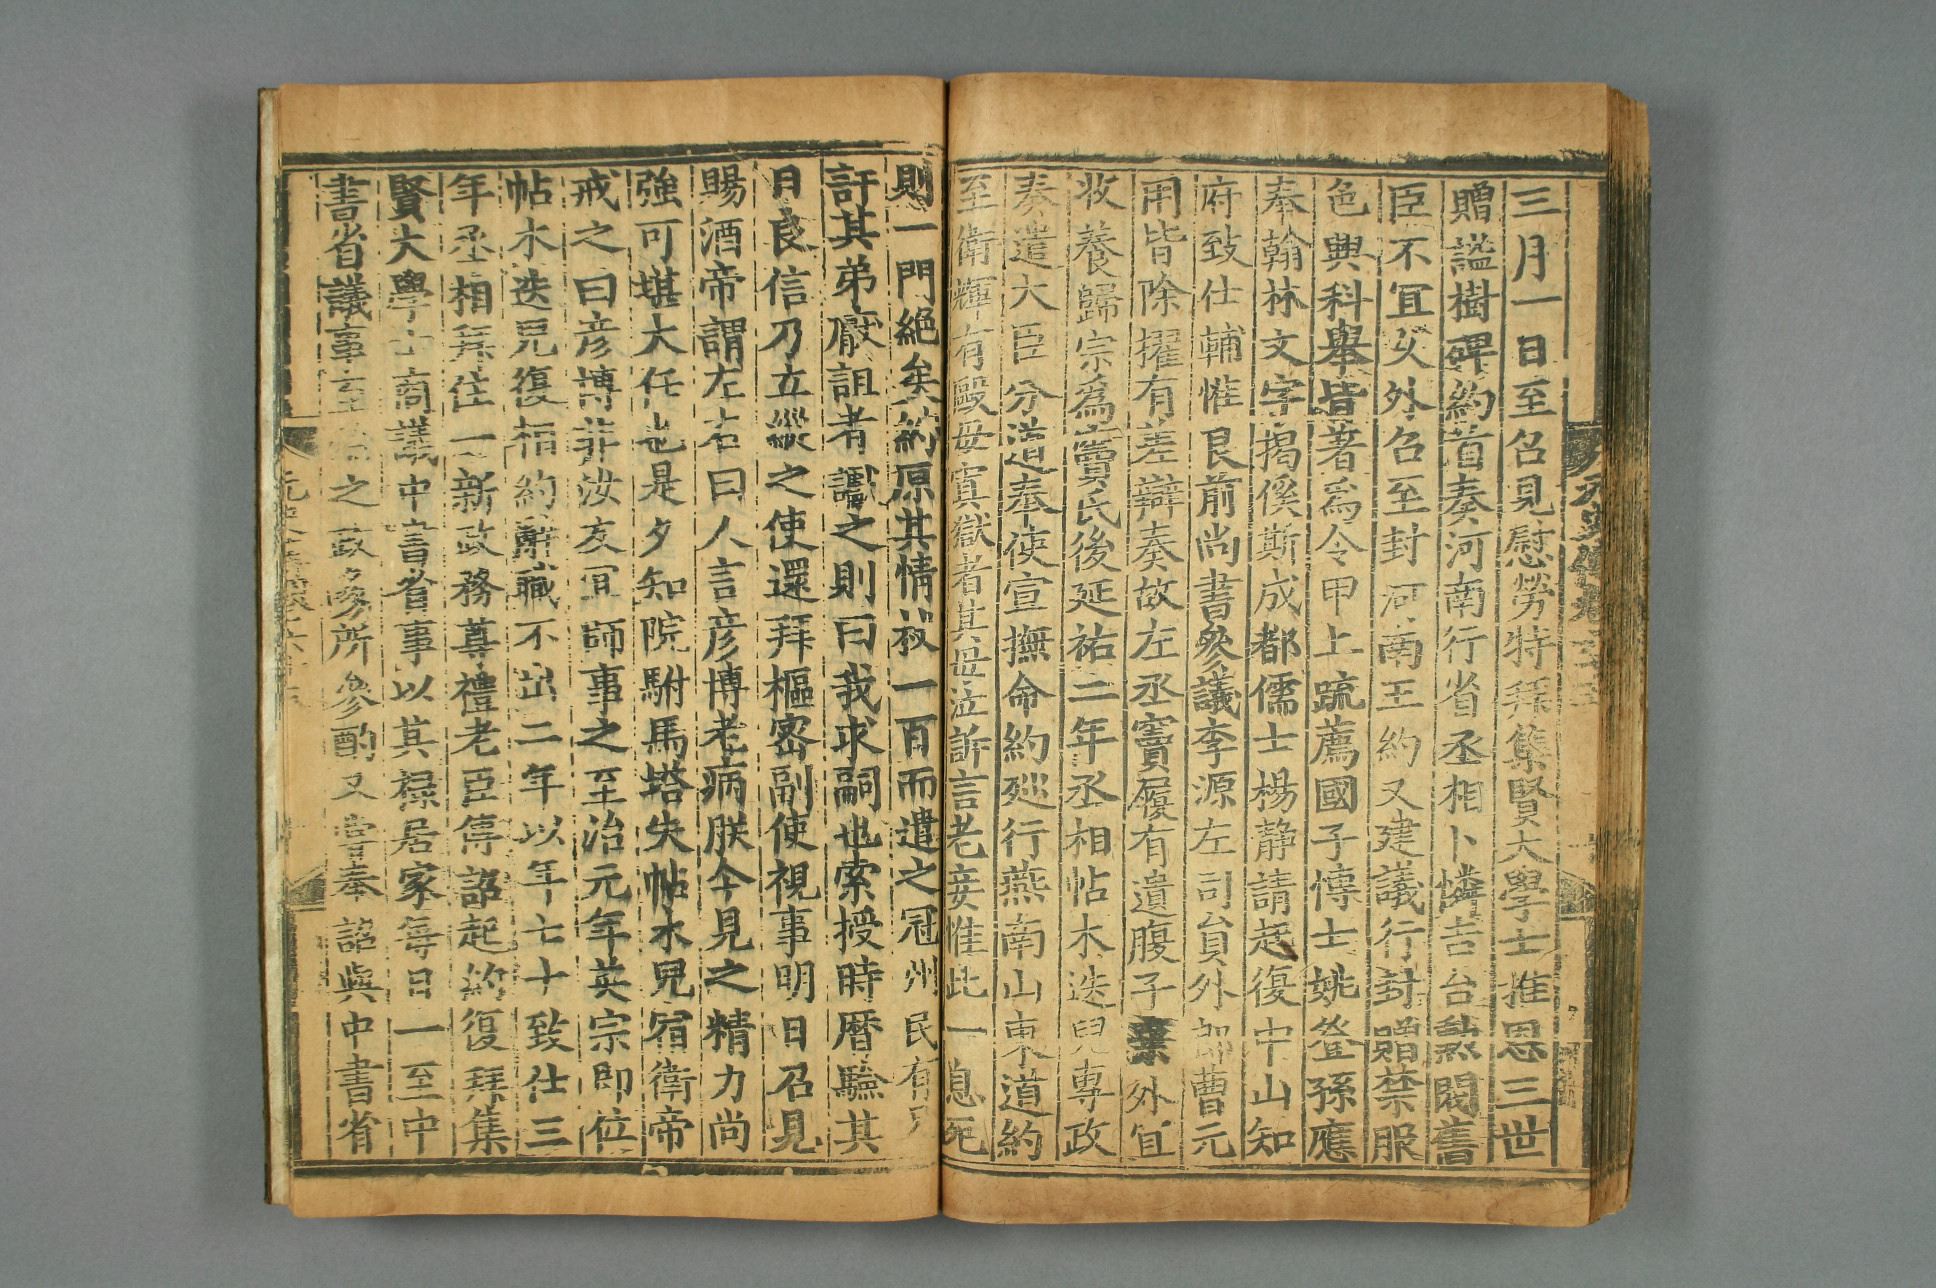 三月一日至召見慰勞特拜集賢大學士推恩三世
贈謚樹碑約首奏河南行省丞相卜憐吉台勲閥舊
臣不宜久外召至封河南王約又建議行封贈禁服
色興科舉皆著爲令甲上疏薦國子博士姚登孫應
奉翰林文字揭傒斯成都儒士楊靜請起復中山知
府致仕輔惟良前尚書參議李源左司員外郎曹元
用皆除擢有差辯奏故左丞竇履有遺腹子棄外宜
收養歸宗爲竇氏後延祐二年丞相帖木迭兒專政
奏遣大臣分道奉使宣撫命約廵行燕南山東道約
至衛輝有毆母寘獄者其母泣訴言老妾惟此一息死
則一門絶矣約原其情杖一百而遣之冠州民有兄
訐其弟厭詛者讞之則曰我求嗣也索授時曆驗其
日良信乃立縱之使還拜樞密副使視事明日召見
賜酒帝謂左右曰人言彦博老病朕今見之精力尚
強可堪大任也是夕知院駙馬塔失帖木兒宿衛帝
戒之曰彦博非汝友宜師事之至治元年英宗即位
帖木迭兒復相約辭職不出二年以年七十致仕三
年丞相拜住一新政務尊禮老臣傳詔起約復拜集
賢大學士商議中書省事以其祿居家每日一至中
書省議事至治之政多所參酌又嘗奉詔與中書省